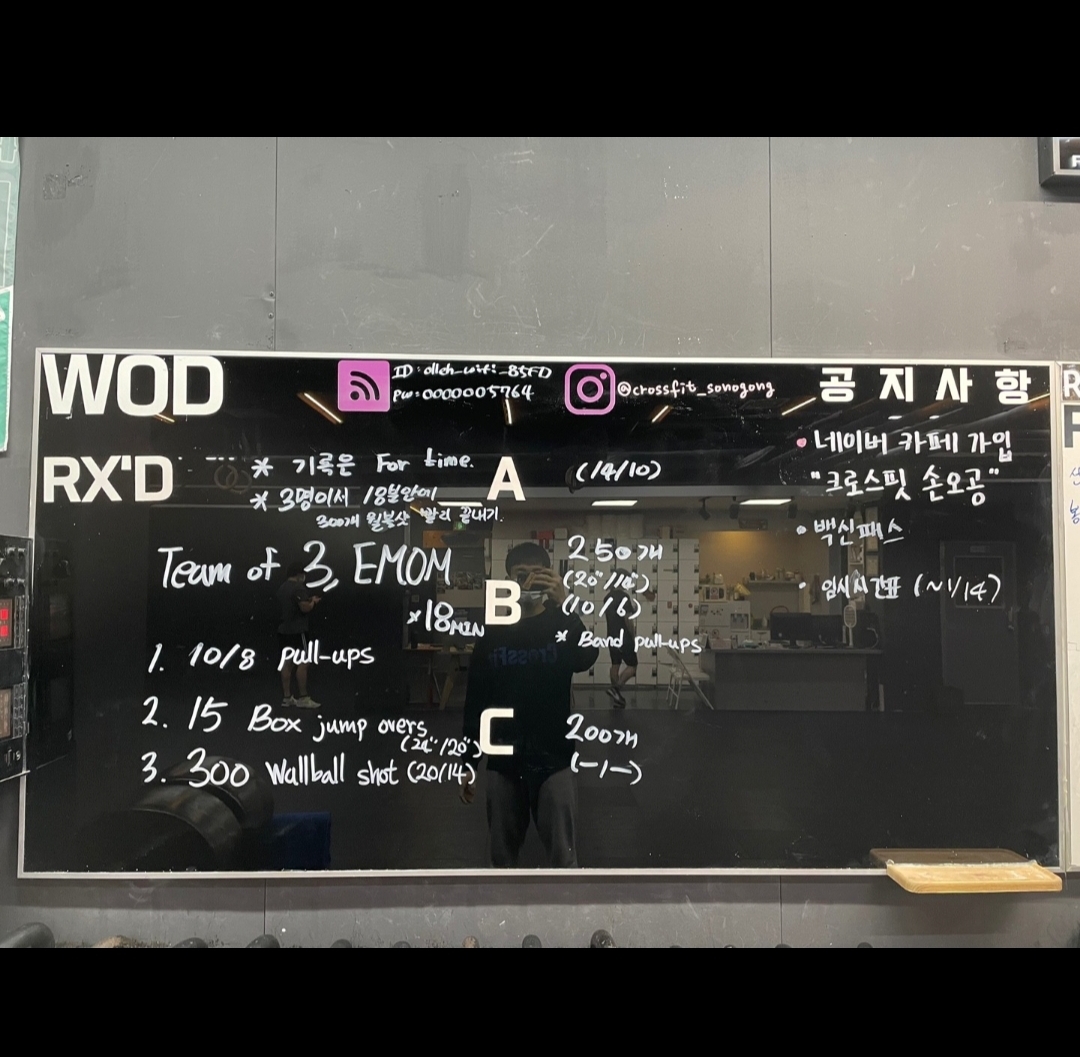 WOD
ID : dlch_wifi_85FD
PW : 0000005764
@crossfit_sonogong
공지사항
RX'D
* 기록은 For time.
* 3명이서 18분안에
300개 월볼샷 빨리 끝내기.
Team of 3, EMOM
×18MIN
1. 10/8 pull-ups
2. 15 Box jump overs
(24"/20")
3. 300 Wallball shot (20/14)
A
(14/10)
B
250개
(20"/16")
(10/6)
* Band pull-ups
C
200개
(-/-)
• 네이버 카페 가입
"크로스핏 손오공"
• 백신패스
• 임시시간표 (~1/14)